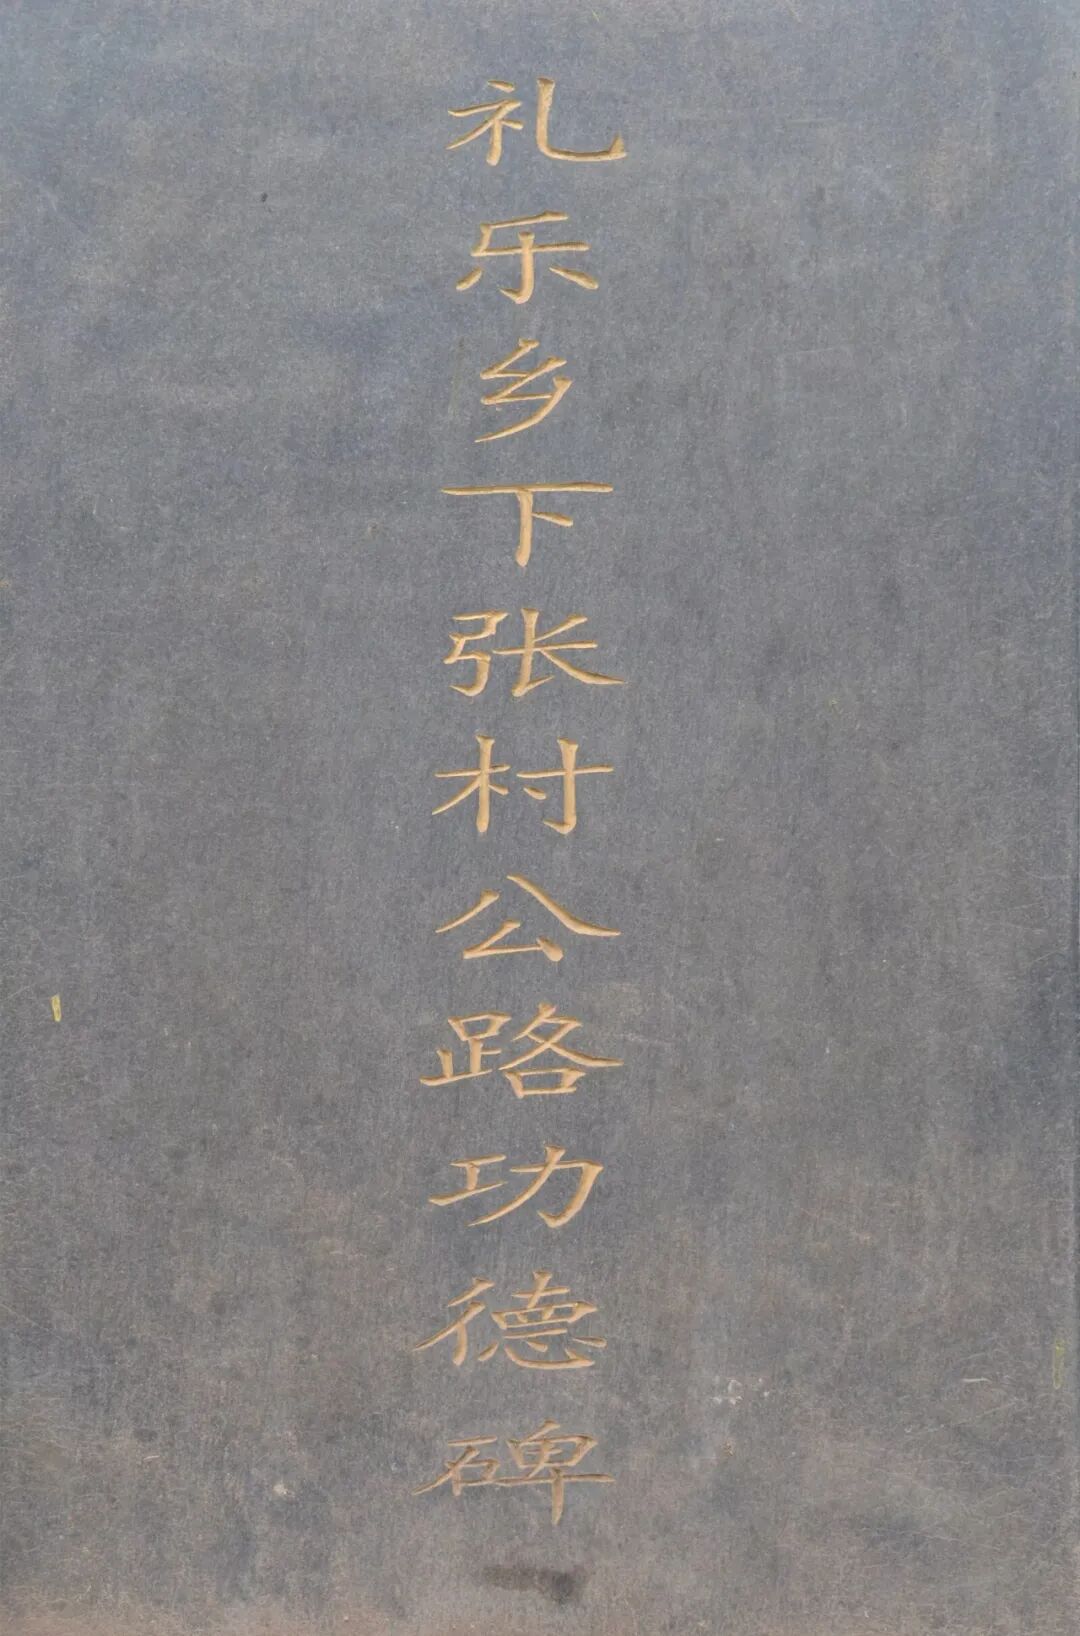 礼乐乡下张村公路功德碑